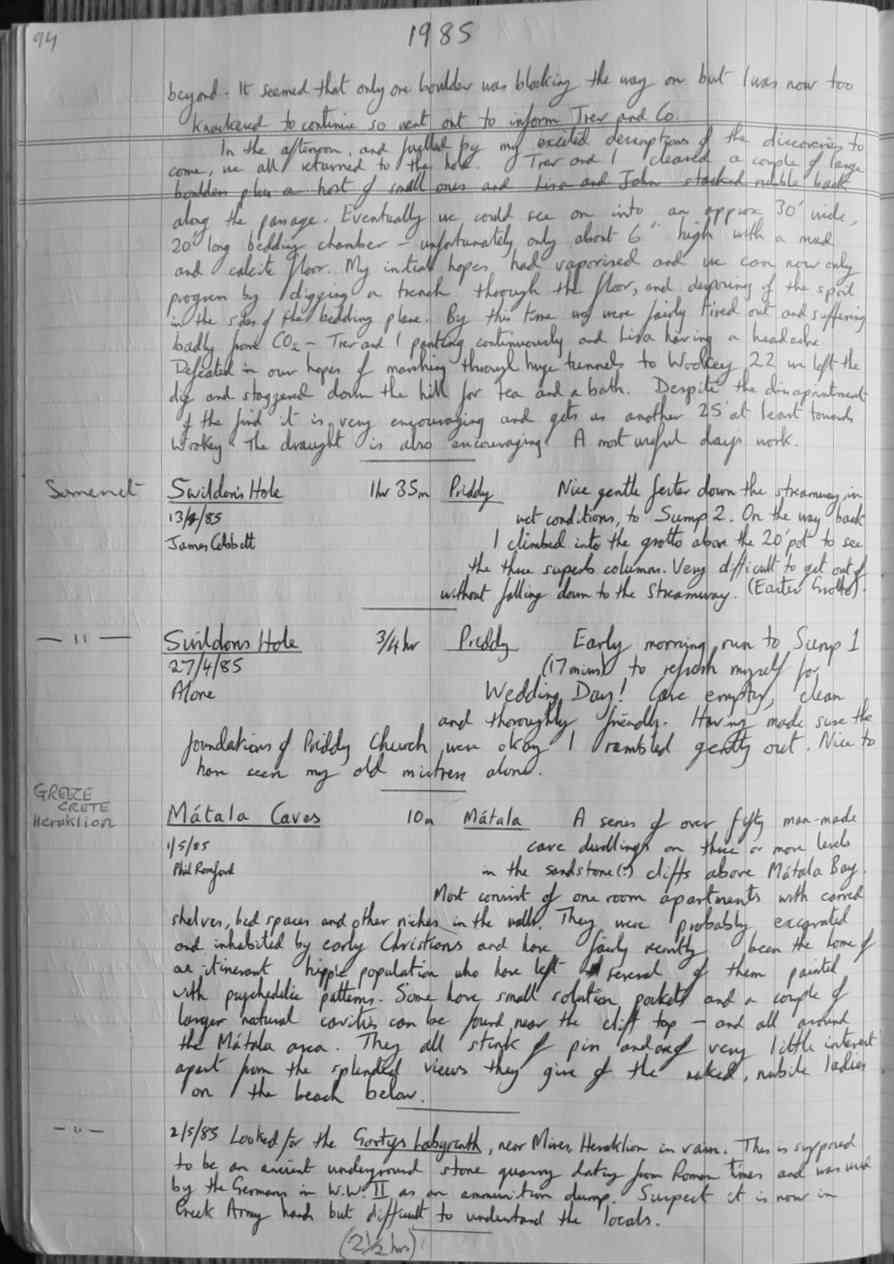 94
1985
beyond. It seemed that only one boulder was blocking the way on but I was now too
knackered to continue so went out to inform Trev and Co.
In the afternoon, and fuelled by my excited descriptions of the discoveries to
come, we all returned to the hole. Trev and I cleared a couple of large
boulders plus a host of small ones and Lisa and John stacked rubble back
along the passage. Eventually we could see on into an approx 30' wide,
20' long bedding chamber - unfortunately only about 6" high with a mud
and calcite floor. My initial hopes had vaporised and we can now only
progress by digging a trench through the floor, and disposing of the spoil
in the sides of the bedding plane. By this time we were fairly tired out and suffering
badly from CO2 - Trev and I panting continuously and Lisa having a headache.
Defeated in our hopes of marching through huge tunnels to Wookey 22 we left the
dig and staggered down the hill for tea and a bath. Despite the disappointment
of the find it is very encouraging and gets us another 25' at least towards
Wookey. The draught is also encouraging. A most useful days work.
Somerset Swildon's Hole 1hr 35m Priddy Nice gentle fester down the streamway, in
13/4/85 wet conditions, to Sump 2. On the way back
James Cobbett I climbed into the grotto above the 20' pot to see
the three superb columns. Very difficult to get out of
without falling down to the streamway. (Easter Grotto).
— " — Swildons Hole 3/4 hr Priddy Early morning run to Sump 1
27/4/85 (17 mins) to refresh myself for
Alone Wedding Day! Cave empty, clean
and thoroughly friendly. Having made sure the
foundations of Priddy Church were okay I rambled gently out. Nice to
have seen my old mistress alone.
GREECE
CRETE
Heraklion
Mátala Caves 10m Mátala A series of over fifty man-made
1/5/85 cave dwellings on three or more levels
Phil Romford in the sandstone(?) cliffs above Mátala Bay.
Most consist of one room apartments with carved
shelves, bed spaces and other niches in the walls. They were probably excavated
and inhabited by early Christians and have fairly recently been the home of
an itinerant hippie population who have left several of them painted
with psychedelic patterns. Some have small solution pockets and a couple of
larger natural cavities can be found near the cliff top - and all around
the Mátala area. They all stink of piss and are of very little interest
apart from the splendid views they give of the naked, nubile ladies
on the beach below.
— " — 2/5/85 Looked for the Gortys Labyrinth, near Mires, Heraklion in vain. This is supposed
to be an ancient underground stone quarry dating from Roman times and was used
by the Germans in W.W. II as an ammunition dump. Suspect it is now in
Greek Army hands but difficult to understand the locals.
(2 1/2 hrs)